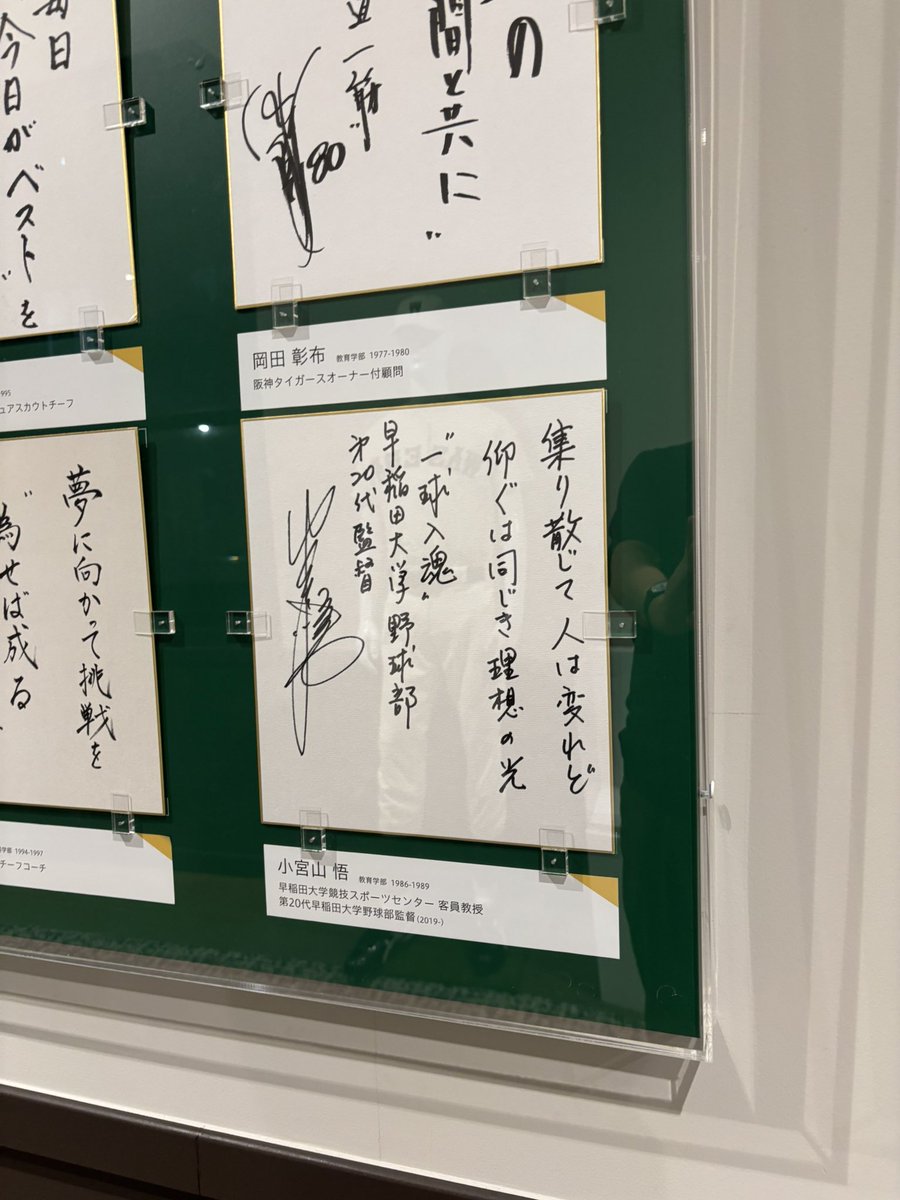 毎日
今日がベストを
の
間と共に〟
一筋〟
80
岡田 彰布 教育学部 1977-1980
阪神タイガースオーナー付顧問
1995
ュアスカウトチーフ
夢に向かって挑戦を
〝為せば成る
学部 1994-1997
チーフコーチ
集り散じて 人は変れど
仰ぐは同じき理想の光
〝一球入魂〟
早稲田大学野球部
第20代監督
小宮山 悟 教育学部 1986-1989
早稲田大学競技スポーツセンター 客員教授
第20代早稲田大学野球部監督(2019-)